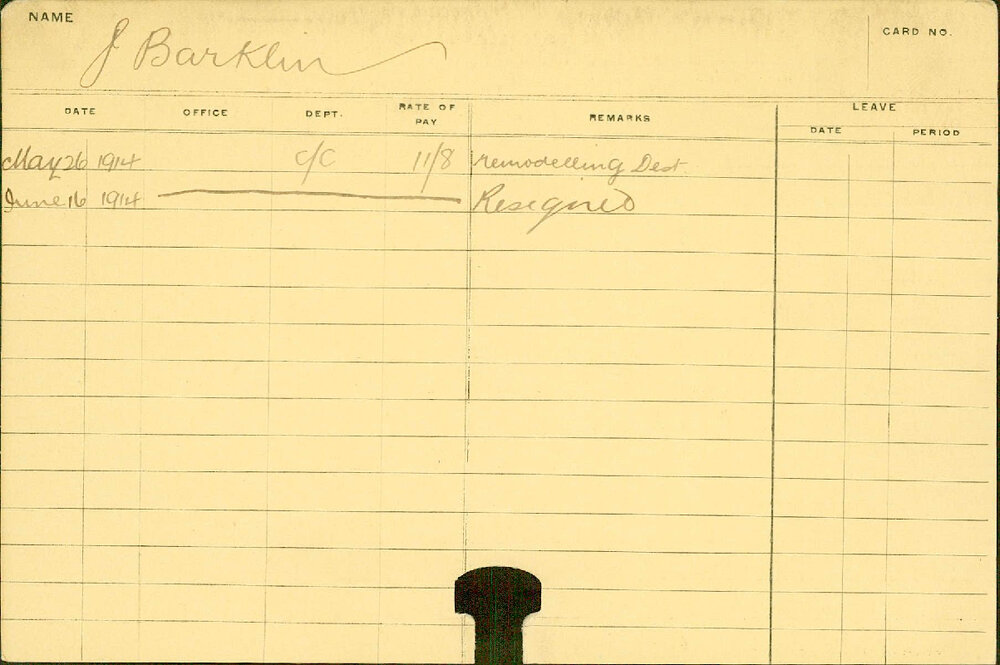 NAME
J Barklin
CARD NO.
DATE OFFICE DEPT. RATE OF PAY REMARKS LEAVE
DATE PERIOD
May 26 1914 c/c 11/8 remodelling Dest
June 16 1914 Resigned